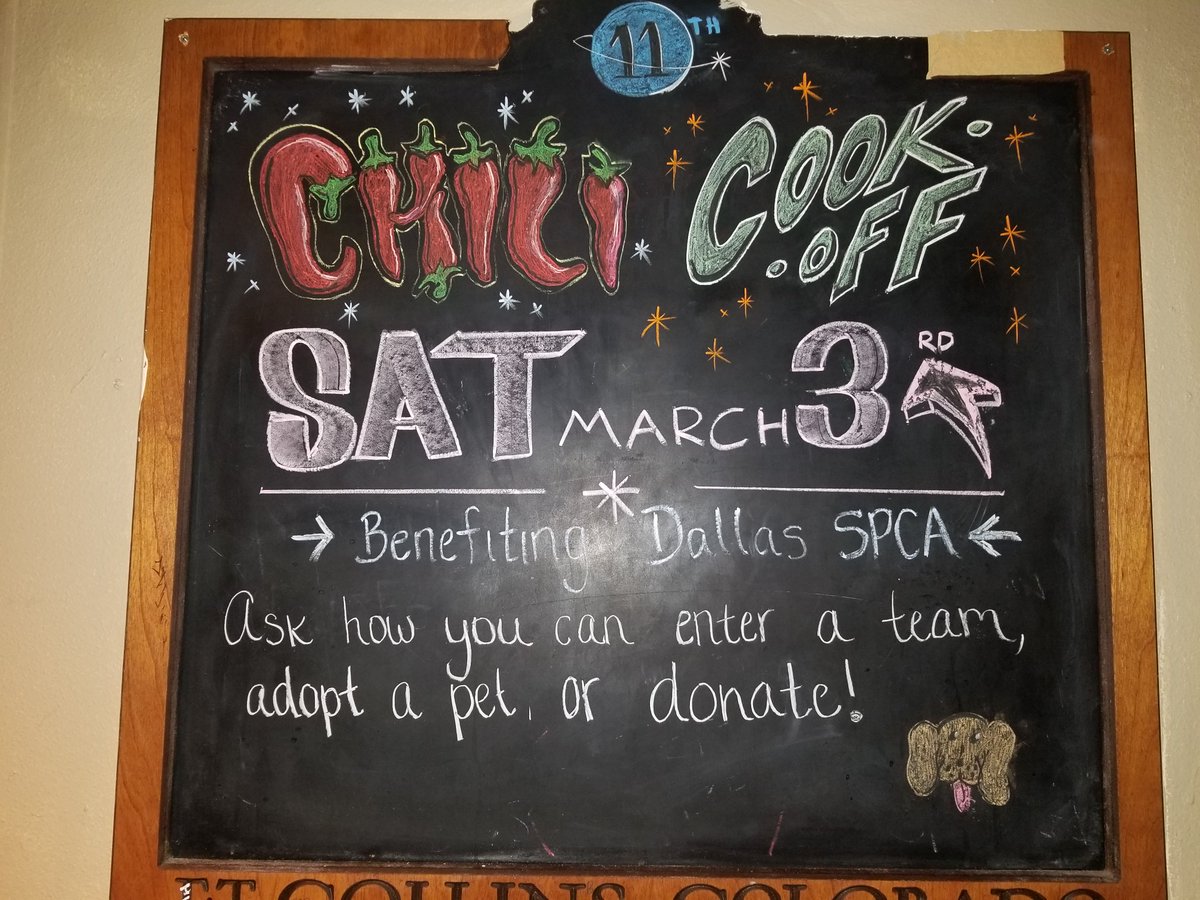 11TH
CHILI COOK-
OFF
SAT MARCH 3RD
Benefiting Dallas SPCA
Ask how you can enter a team,
adopt a pet, or donate!
FT COLLINS COLORADO